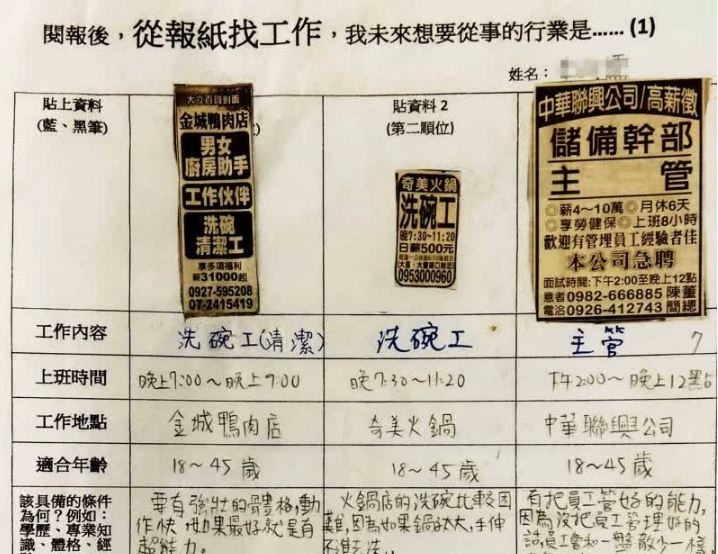 閱報後，從報紙找工作，我未來想要從事的行業是…… (1)
姓名：
貼上資料
(藍、黑筆)
大立百貨對面
金城鴨肉店
男女
廚房助手
工作伙伴
洗碗
清潔工
享多項福利
薪31000起
0927-595208
07-2415419
貼資料 2
(第二順位)
奇美火鍋
洗碗工
晚7:30~11:20
日薪500元
0953000960
中華聯興公司/高薪徵
儲備幹部
主管
◎薪4~10萬◎月休6天
◎享勞健保◎上班8小時
歡迎有管理員工經驗者佳
本公司急聘
面試時間:下午2:00至晚上12點
意者0982-666885 陳董
電洽0926-412743 簡總
工作內容
洗碗工(清潔)
洗碗工
主管
7
上班時間
晚上7:00~晚上9:00
晚7:30~11:20
下午2:00~晚上12點
工作地點
金城鴨肉店
奇美火鍋
中華聯興公司
適合年齡
18~45歲
18~45歲
18~45歲
該具備的條件
為何？例如：
學歷、專業知
識、體格、經
要有強壯的體格,動
作快,如果最好就是有
超能力。
火鍋店的洗碗比較困
難,因為如果鍋太大,手伸
有把員工管好的能力,
因為沒把員工管理好的
話,員工會和一盤散沙一樣